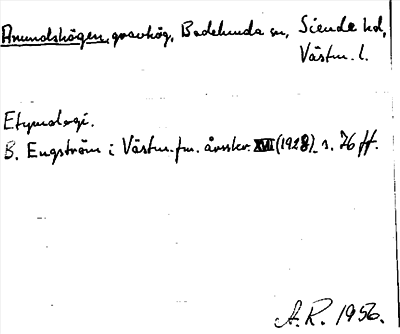 Anundshögen, gravhög, Badelunda sn, Siende hd,
Västm. l.
Etymologi.
B. Engström i Västm. fm. årsskr. XVII (1928) s. 76 ff.
A.R. 1956.